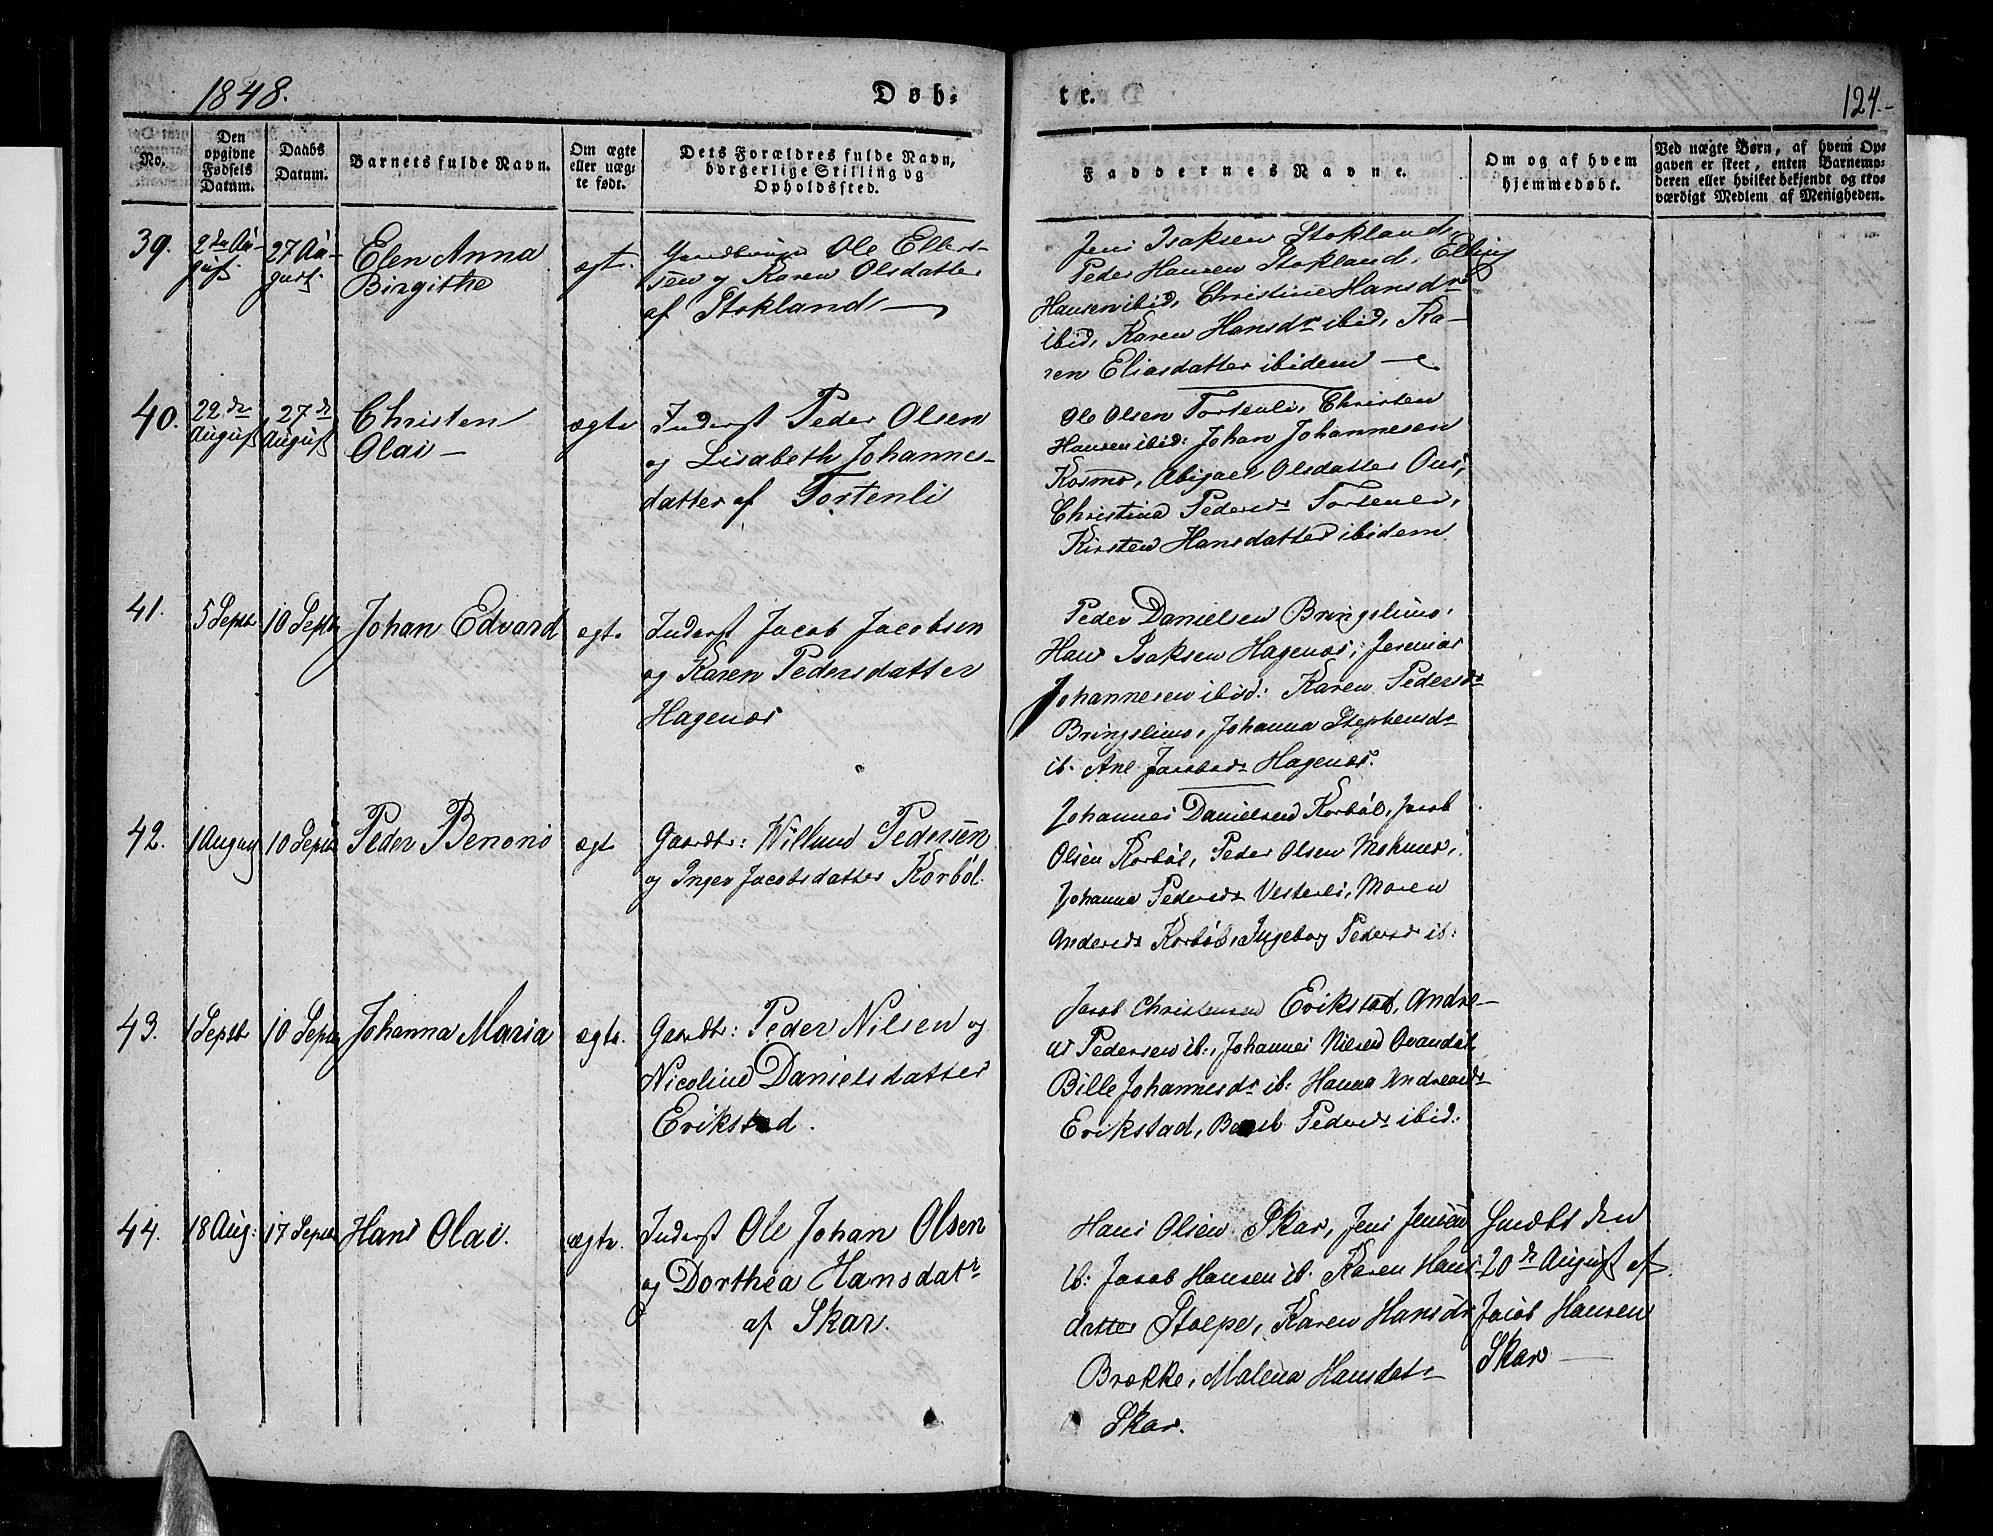 1848.
Døb-
te.
124.-
No.
Den opgivne Fødsels Datum.
Daabs Datum.
Barnets fulde Navn.
Om ægte eller uægte født.
Dets Forældres fulde Navn, borgerlige Stilling og Opholdssted.
Faddernes Navne.
Om og af hvem hjemmedøbt.
Ved uægte Børn, af hvem Opgaven er skeet, enten Barnemoderen eller hvilket bekjendt og troværdigt Medlem af Menigheden.
39.
2den Au-
gust
27 Au-
gust
Elen Anna
Birgithe
ægte.
Ole Ellers-
sen og Karen Olsdatter
af Stokland
Jens Isaksen Stokland,
Peder Hansen Stokland, Elling
Hansen ibid, Christine Hansdr
ibid, Karen Hansdr ibid, Ka-
ren Eliasdatter ibidem
40.
22de
August
27de
August
Christen
Olai -
ægte
Inderst Peder Olsen
og Lisabeth Johannes-
datter af Tortenli
Ole Olsen Tortenli, Christen
Hansen ibid: Johan Johannesen
Kosmo, Abigael Olsdatter Ous,
Christina Pedersdr Tortenli,
Kirsten Hansdatter ibidem
41.
5 Septbr
10 Septbr
Johan Edvard
ægte
Inderst Jacob Jacobsen
og Karen Pedersdatter
Hagenæs
Peder Danielsen Bringslimo,
Hans Isaksen Hagenæs, Jeremias
Johannesen ibid: Karen Pedersdr
Bringslimo, Johanna Stephensdr
ib. Ane Jacobsdr Hagenæs.
42.
1 August
10 Septbr
Peder Benoni
ægte
Gaardbr: Willum Pedersen
og Inger Jacobsdatter Korbøl.
Johannes Danielsen Korbøl, Jacob
Olsen Korbøl, Peder Olsen
Johanna Pedersdr Vesterli, Maren
Andersdr Korbøl, Ingeborg Pedersdr ib:
43.
1 Septbr
10 Septbr
Johanna Maria
ægte.
Gaardbr: Peder Nilsen og
Nicoline Danielsdatter
Erikstad.
Jacob Christensen Erikstad, Andre-
as Pedersen ib:, Johannes Nilsen
Bille Johannesdr ib: Hanna Andreasdr
Erikstad, Pedersdr ibid:
44.
18 Aug:
17 Septbr
Hans Olai.
ægte.
Inderst Ole Johan Olsen
og Dorthea Hansdatr
af Skar.
Hans Olsen Skar, Jens Jensen
ib: Jacob Hansen ib. Karen Hans-
datter Stolpe, Karen Hansdr
Brække, Malena Hansdatr
Skar.
den
20de August af
Jacob Hansen
Skar